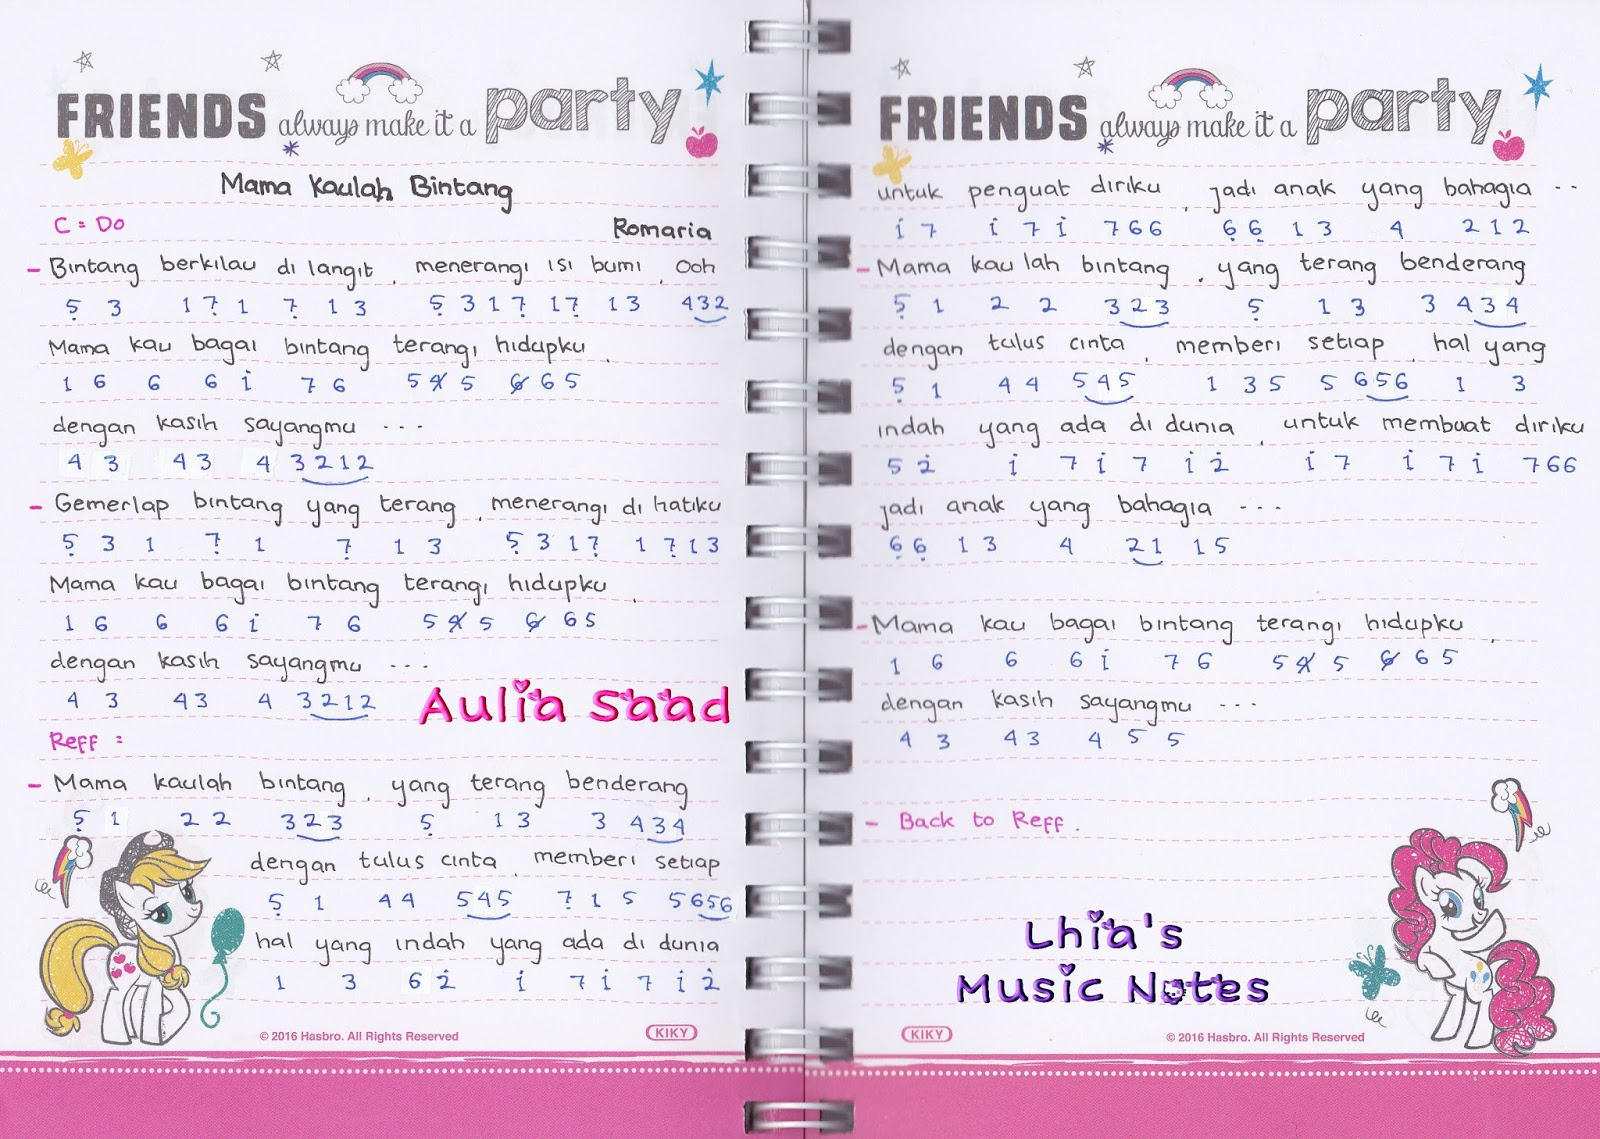 FRIENDS always make it a party
Mama Kaulah Bintang
C = Do
Romaria
- Bintang berkilau di langit, menerangi isi bumi, Ooh
5̣ 3 1 7̣ 1 7̣ 1 3 5̣ 3 1 7̣ 1 7̣ 1 3 4 3 2
Mama kau bagai bintang terangi hidupku,
1 6 6 6 i 7 6 5 4̸ 5 6̸ 6 5
dengan kasih sayangmu ...
4 3 4 3 4 3 2 1 2
- Gemerlap bintang yang terang, menerangi di hatiku
5̣ 3 1 7̣ 1 7̣ 1 3 5̣ 3 1 7̣ 1 7̣ 1 3
Mama kau bagai bintang terangi hidupku,
1 6 6 6 i 7 6 5 4̸ 5 6̸ 6 5
dengan kasih sayangmu ...
4 3 4 3 4 3 2 1 2
Aulia Saad
Reff :
- Mama kaulah bintang, yang terang benderang
5̣ 1 2 2 3 2 3 5̣ 1 3 3 4 3 4
dengan tulus cinta, memberi setiap
5̣ 1 4 4 5 4 5 7̣ 1 5 5 6 5 6
hal yang indah yang ada di dunia
1 3 6 2̇ i 7 i 7 i 2̇
© 2016 Hasbro. All Rights Reserved
KIKY
FRIENDS always make it a party
untuk penguat diriku, jadi anak yang bahagia ..
i 7 i 7 i 7 6 6 6̣ 6̣ 1 3 4 2 1 2
- Mama kau lah bintang, yang terang benderang
5̣ 1 2 2 3 2 3 5̣ 1 3 3 4 3 4
dengan tulus cinta, memberi setiap, hal yang
5̣ 1 4 4 5 4 5 1 3 5 5 6 5 6 1 3
indah yang ada di dunia, untuk membuat diriku
5 2̇ i 7 i 7 i 2̇ i 7 i 7 i 7 6 6
jadi anak yang bahagia ...
6̣ 6̣ 1 3 4 2 1 1 5
- Mama kau bagai bintang terangi hidupku,
1 6 6 6 i 7 6 5 4̸ 5 6̸ 6 5
dengan kasih sayangmu ...
4 3 4 3 4 5 5
- Back to Reff.
Lhia's
Music Notes
KIKY
© 2016 Hasbro. All Rights Reserved